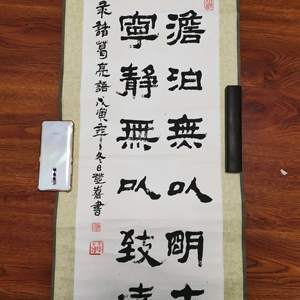 澹泊無以明
寧靜無以致遠
录諸葛亮語戊寅年冬日書